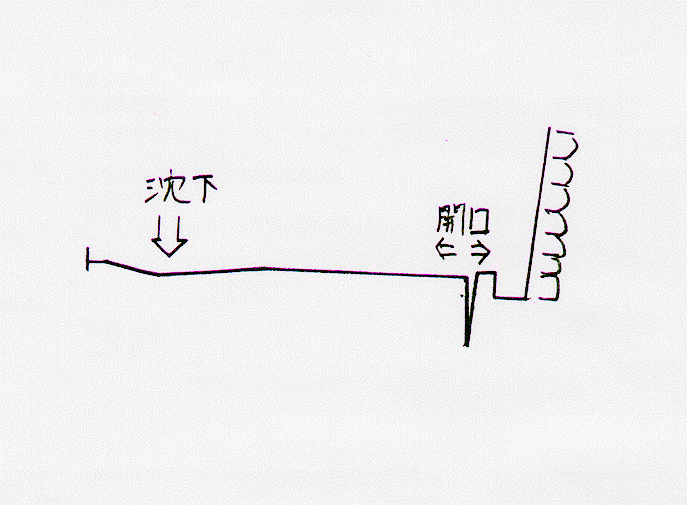 沈下
開口